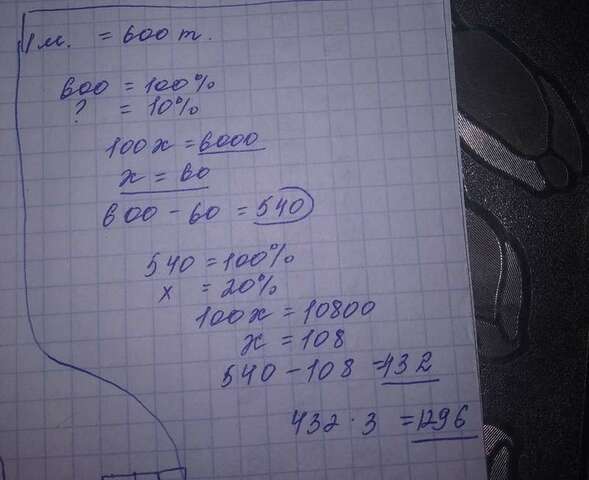 1м. = 600 т.
600 = 100%
? = 10%
100x = 6000
x = 60
600 - 60 = 540
540 = 100%
x = 20%
100x = 10800
x = 108
540 - 108 = 432
432 · 3 = 1296